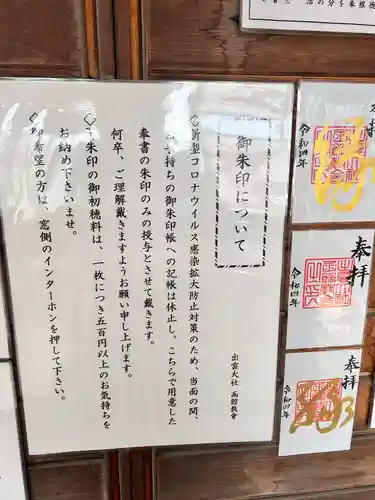 御朱印について
◇新型コロナウイルス感染拡大防止対策のため、当面の間、
お手持ちの御朱印帳への記帳は休止し、こちらで用意した
奉書の朱印のみの授与とさせて戴きます。
何卒、ご理解戴きますようお願い申し上げます。
◇御朱印の御初穂料は、一枚につき五百円以上のお気持ちを
お納め下さいませ。
◇御希望の方は、窓側のインターホンを押して下さい。
出雲大社 函館教会
令和四年
奉拝
令和四年
奉拝
令和四年